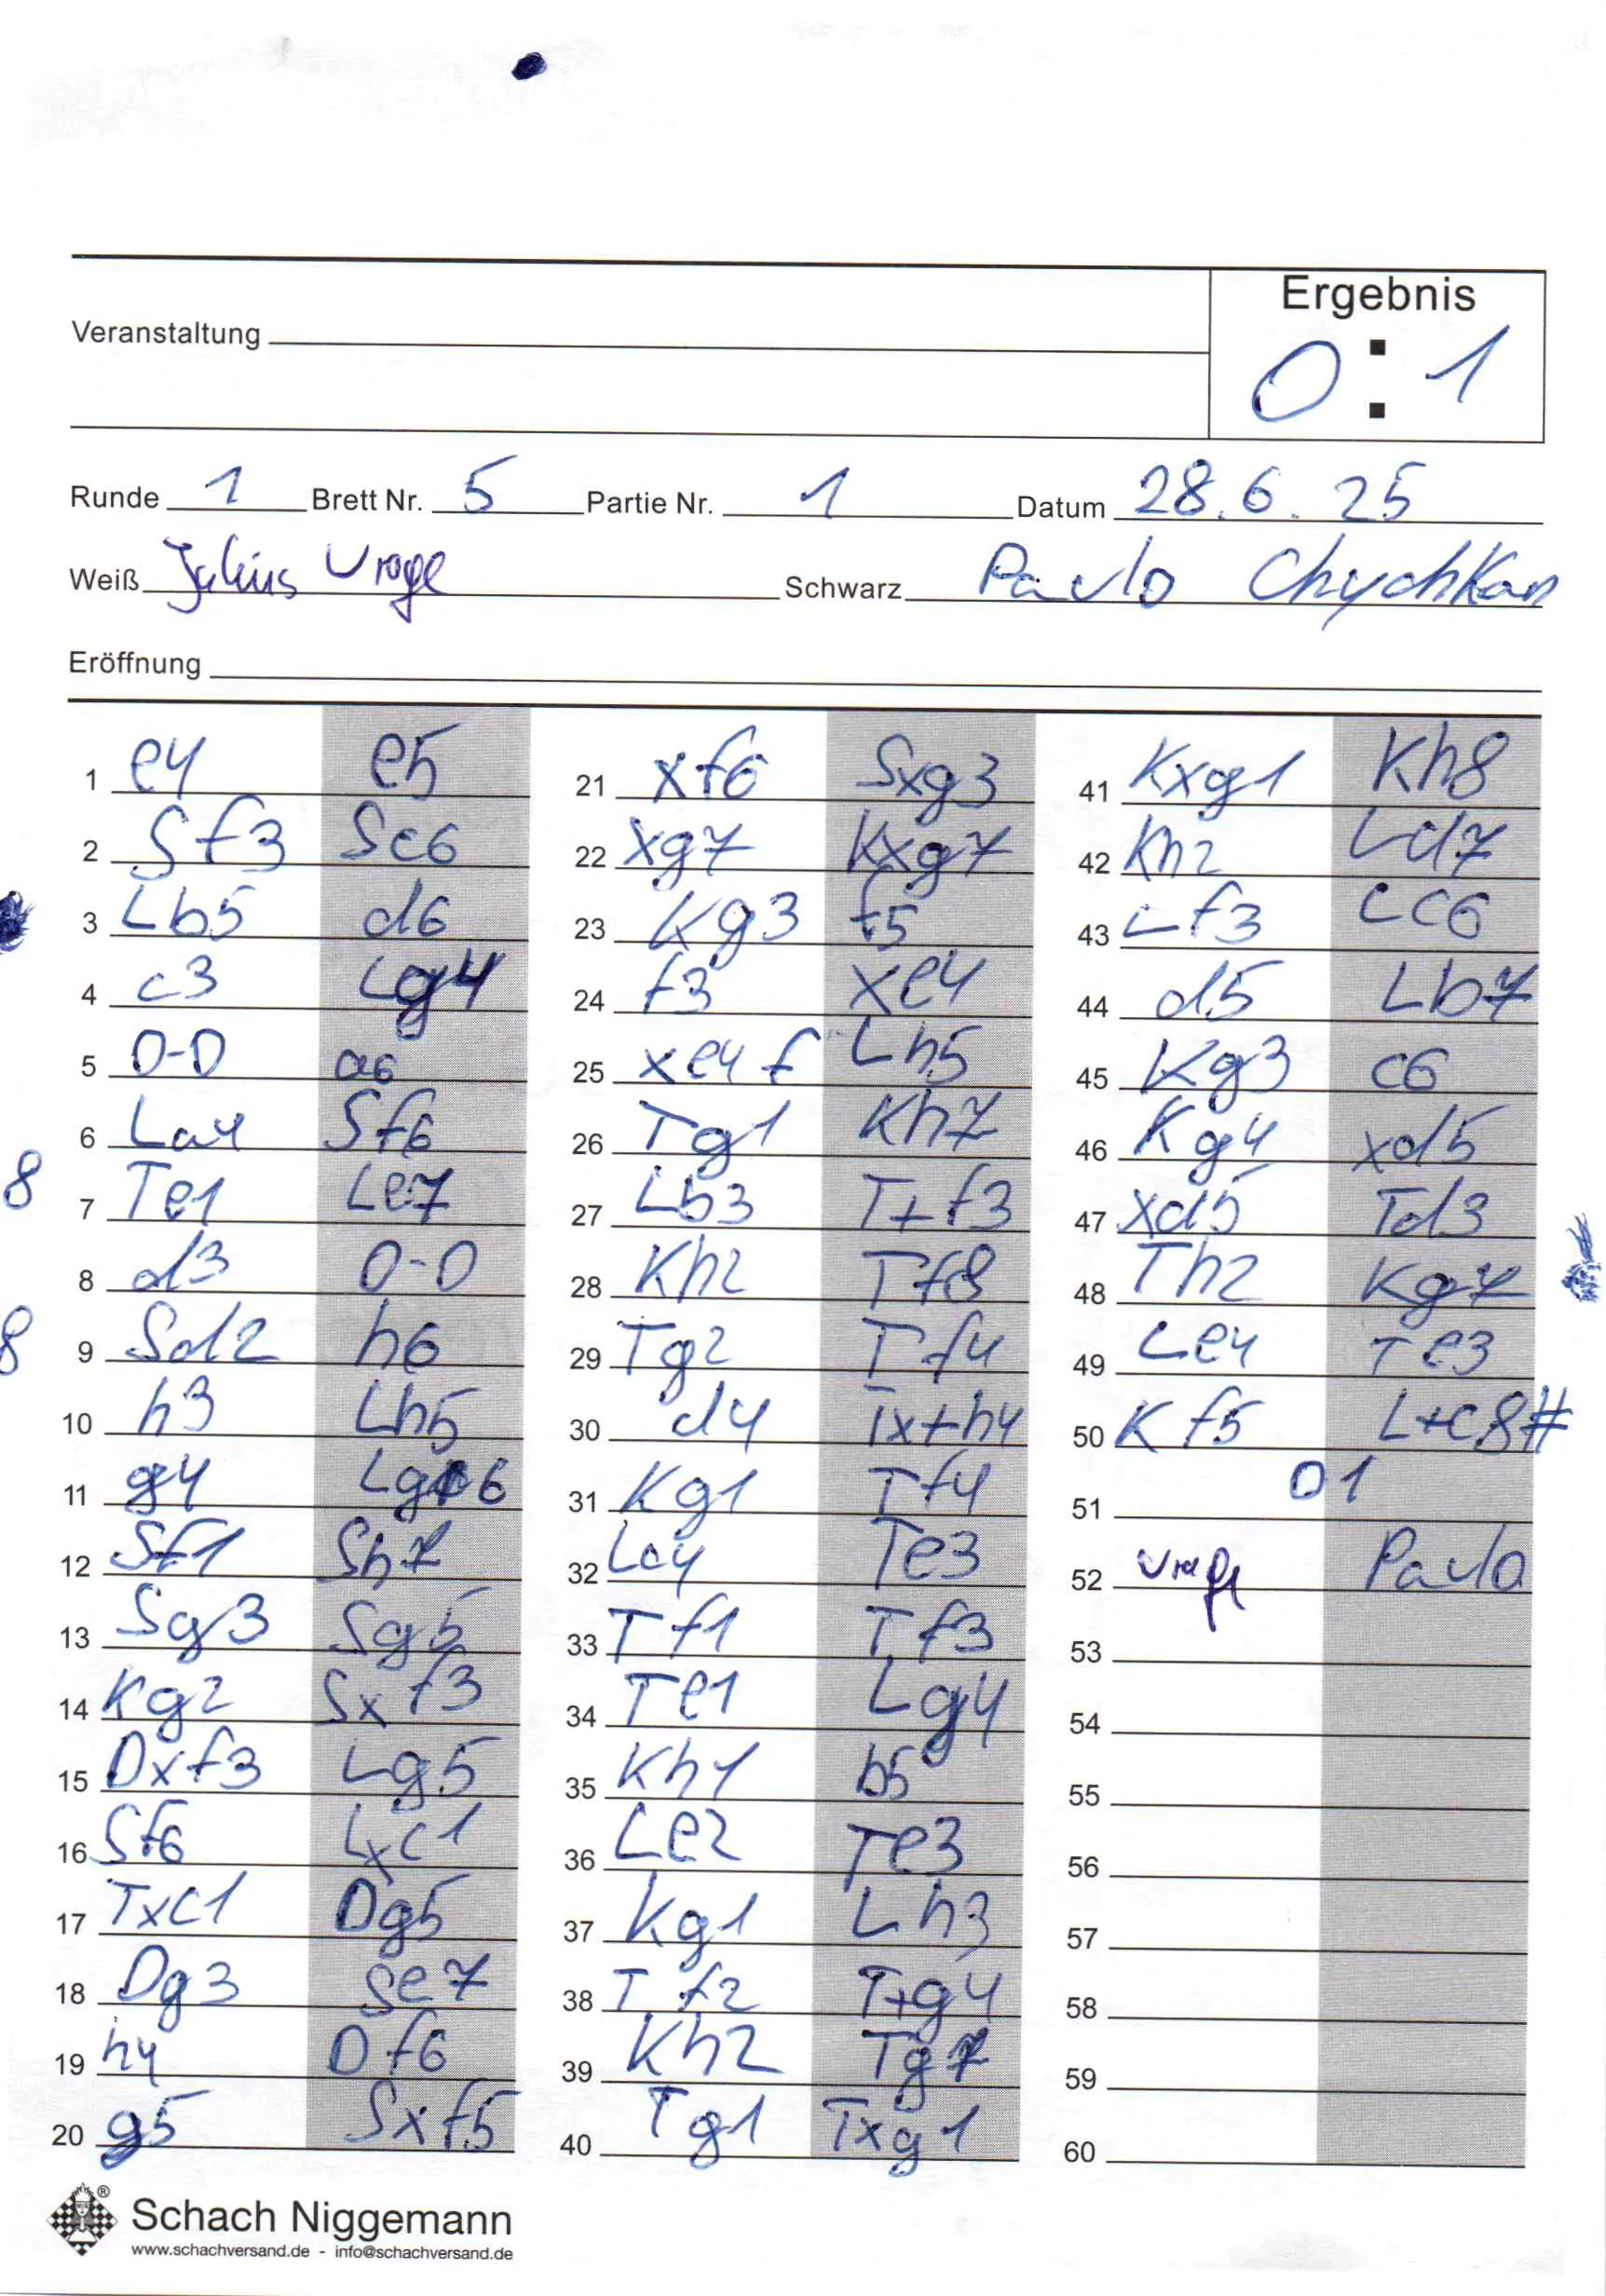 Ergebnis
Veranstaltung
0 : 1
Runde 1 Brett Nr. 5 Partie Nr. 1 Datum 28.6.25
Weiß Julius Schwarz Pavlo Chychkan
Eröffnung
1 e4 e5
2 Sf3 Sc6
3 Lb5 d6
4 c3 Lg4
5 0-0 a6
6 La4 Sf6
8
7 Te1 Le7
8 d3 0-0
8
9 Sd2 h6
10 h3 Lh5
11 g4 Lg6
12 Sf1 Sh7
13 Sg3 Sg5
14 Kg2 Sxf3
15 Dxf3 Lg5
16 Sf6 Lxc1
17 Txc1 Dg5
18 Dg3 Se7
19 h4 Df6
20 g5 Sxf5
21 xf6 Sxg3
22 xg7 Kxg7
23 Kg3 f5
24 f3 xe4
25 xe4 f Lh5
26 Tg1 Kh7
27 Lb3 T+f3
28 Kh2 Tf8
29 Tg2 Tf4
30 d4 Tx+h4
31 Kg1 Tf4
32 Lc4 Te3
33 Tf1 Tf3
34 Te1 Lg4
35 Kh1 b5
36 Le2 Te3
37 Kg1 Lh3
38 Tf2 T+g4
39 Kh2 Tg7
40 Tg1 Txg1
41 Kxg1 Kh8
42 Kh2 Ld7
43 Lf3 Lc6
44 d5 Lb7
45 Kg3 c6
46 Kg4 xd5
47 xd5 Td3
48 Th2 Kg7
49 Le4 Te3
50 Kf5 L+c8#
51 0 1
52 Pavlo
53
54
55
56
57
58
59
60
Schach Niggemann
www.schachversand.de - info@schachversand.de